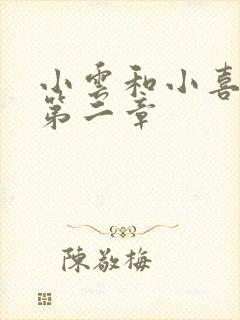 小雲和小喜
第二章
陳敬梅